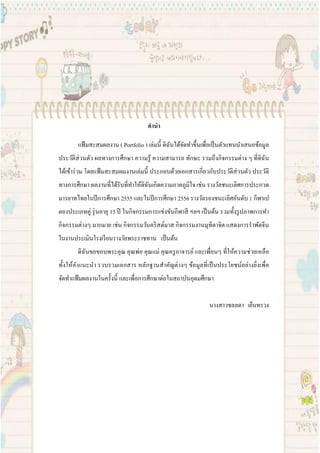 PPY STORY
คำนำ
แฟ้มสะสมผลงาน ( Portfolio ) เล่มนี้ ดิฉันได้จัดทำขึ้นเพื่อเป็นตัวแทนนำเสนอข้อมูล
ประวัติส่วนตัว ผลทางการศึกษา ความรู้ ความสามารถ ทักษะ รวมถึงกิจกรรมต่าง ๆ ที่ดิฉัน
ได้เข้าร่วม โดยแฟ้มสะสมผลงานเล่มนี้ ประกอบด้วยเอกสารเกี่ยวกับประวัติส่วนตัว ประวัติ
ทางการศึกษา ผลงานที่ได้รับที่ทำให้ดิฉันเกิดความภาคภูมิใจ เช่น รางวัลชนะเลิศการประกวด
มารยาทไทยในปีการศึกษา 2555 และในปีการศึกษา 2556 รางวัลรองชนะเลิศอันดับ 1 กีฬาเป
ตองประเภทคู่ รุ่นอายุ 15 ปี ในกิจกรรมการแข่งขันกีฬาสี ฯลฯ เป็นต้น รวมทั้งรูปภาพการทำ
กิจกรรมต่างๆ มากมาย เช่น กิจกรรมวันคริสต์มาส กิจกรรมงานมุทิตาจิต แสดงการรำพัดจีน
ในงานประเมินโรงเรียนรางวัลพระราชทาน เป็นต้น
ดิฉันขอขอบพระคุณ คุณพ่อ คุณแม่ คุณครูอาจารย์ และเพื่อนๆ ที่ให้ความช่วยเหลือ
ทั้งให้คำแนะนำ รวบรวมเอกสาร หลักฐานสำคัญต่างๆ ข้อมูลที่เป็นประโยชน์อย่างยิ่งเพื่อ
จัดทำแฟ้มผลงานในครั้งนี้ และเพื่อการศึกษาต่อในสถาบันอุดมศึกษา
นางสาวชลลดา เย็นทรวง